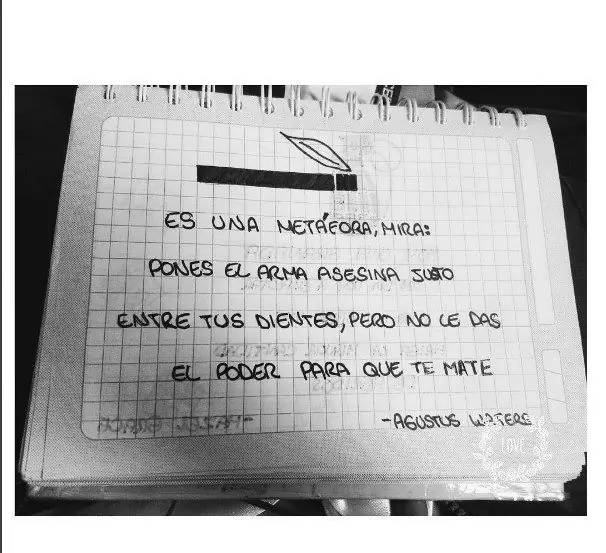 ES UNA METÁFORA, MIRA:
PONES EL ARMA ASESINA JUSTO
ENTRE TUS DIENTES, PERO NO LE DAS
EL PODER PARA QUE TE MATE
-AGUSTUS WATERS
LOVE